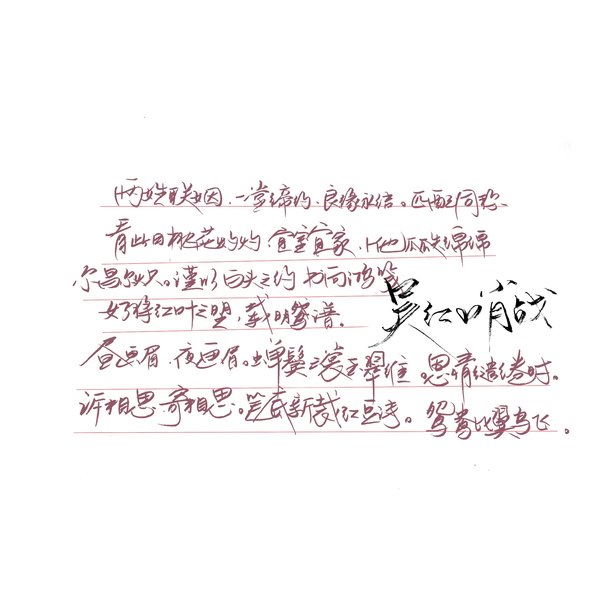 两姓联姻.一堂缔约.良缘永结。匹配同称.
看此日桃花灼灼.宜室宜家.他瓜瓞绵绵
尔昌尔炽。谨以白头之约.书向鸿笺
好将红叶之盟,载明鸳谱.
吴红哨战
昼画眉.夜画眉。蝉鬓 翠 思情缱绻时.
诉相思.寄相思。笔底新裁红豆诗。鸳鸯比翼鸟飞。